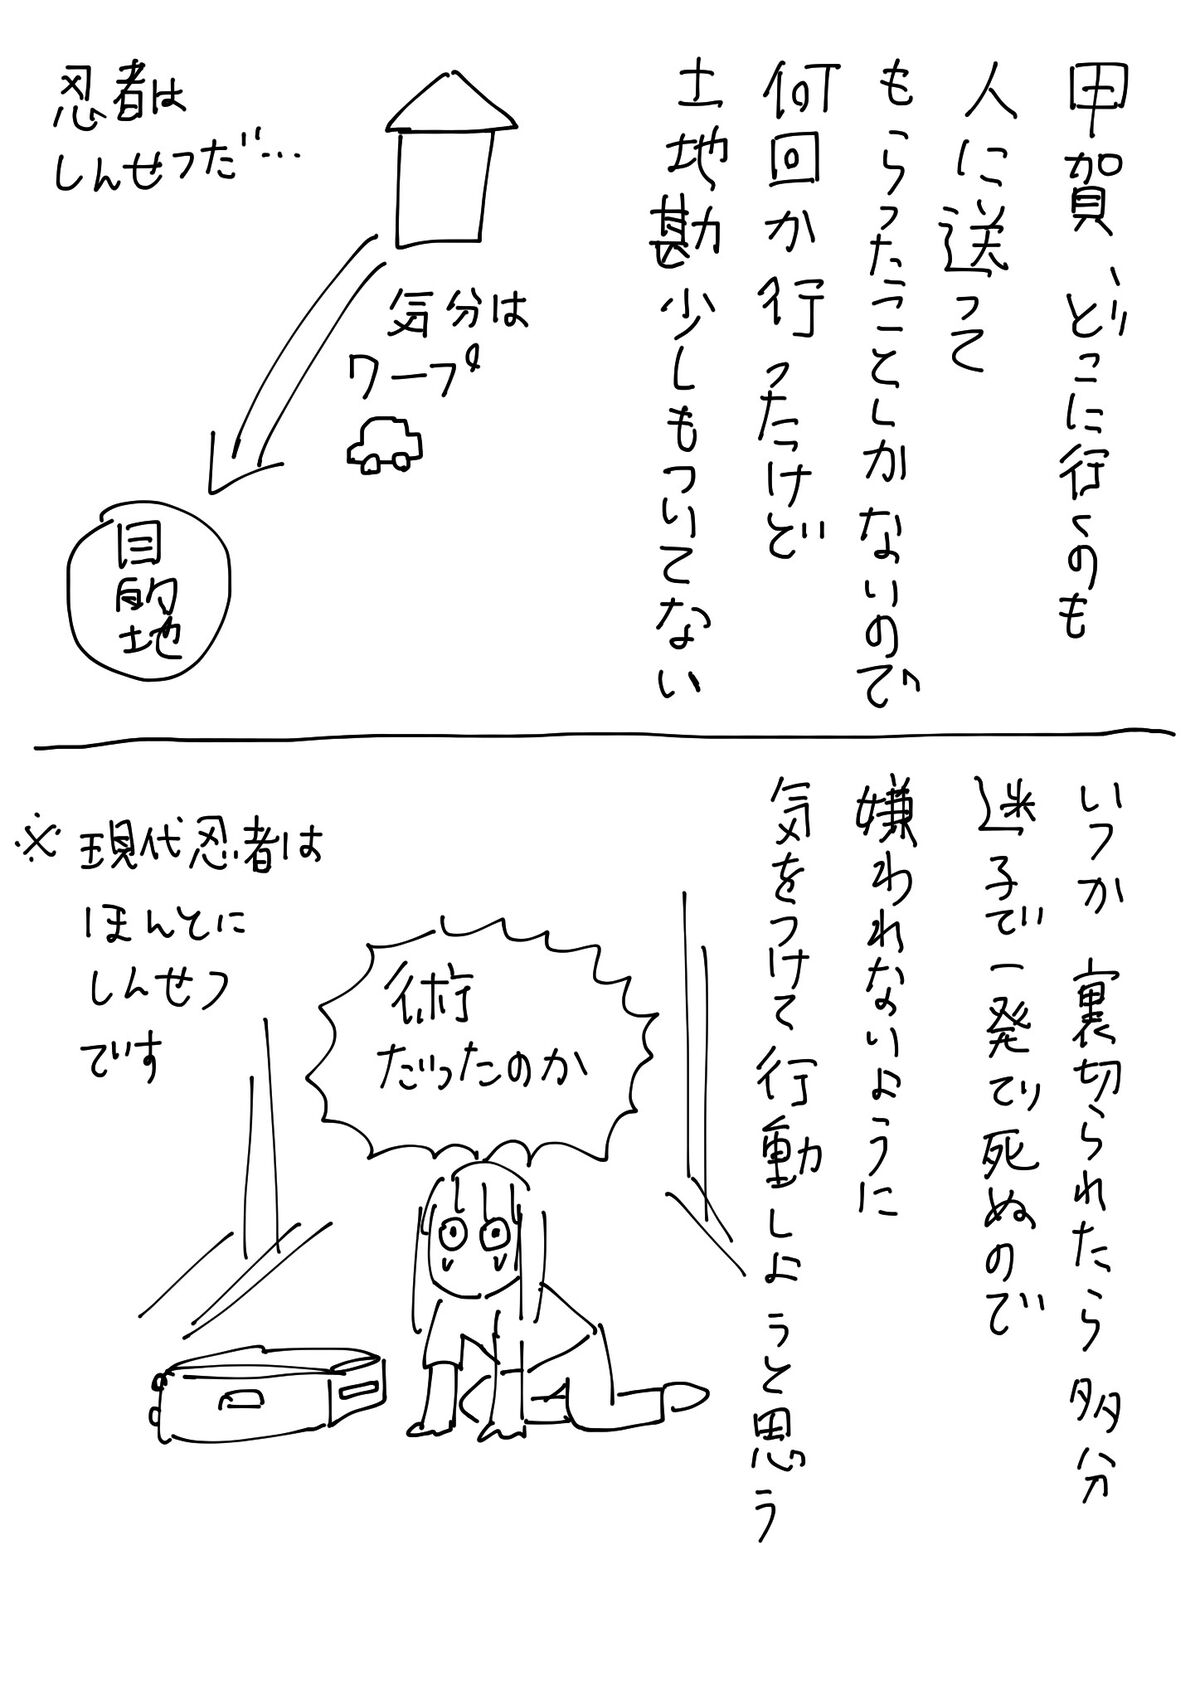 甲賀、どこに行くのも
人に送って
もらったことしかないので
何回か行ったけど
土地勘少しもついてない
忍者は
しんせつだ…
気分は
ワープ
目的地
いつか裏切られたら多分
迷子で一発で死ぬので
嫌われないように
気をつけて行動しようと思う
術
だったのか
※現代忍者は
ほんとに
しんせつ
です